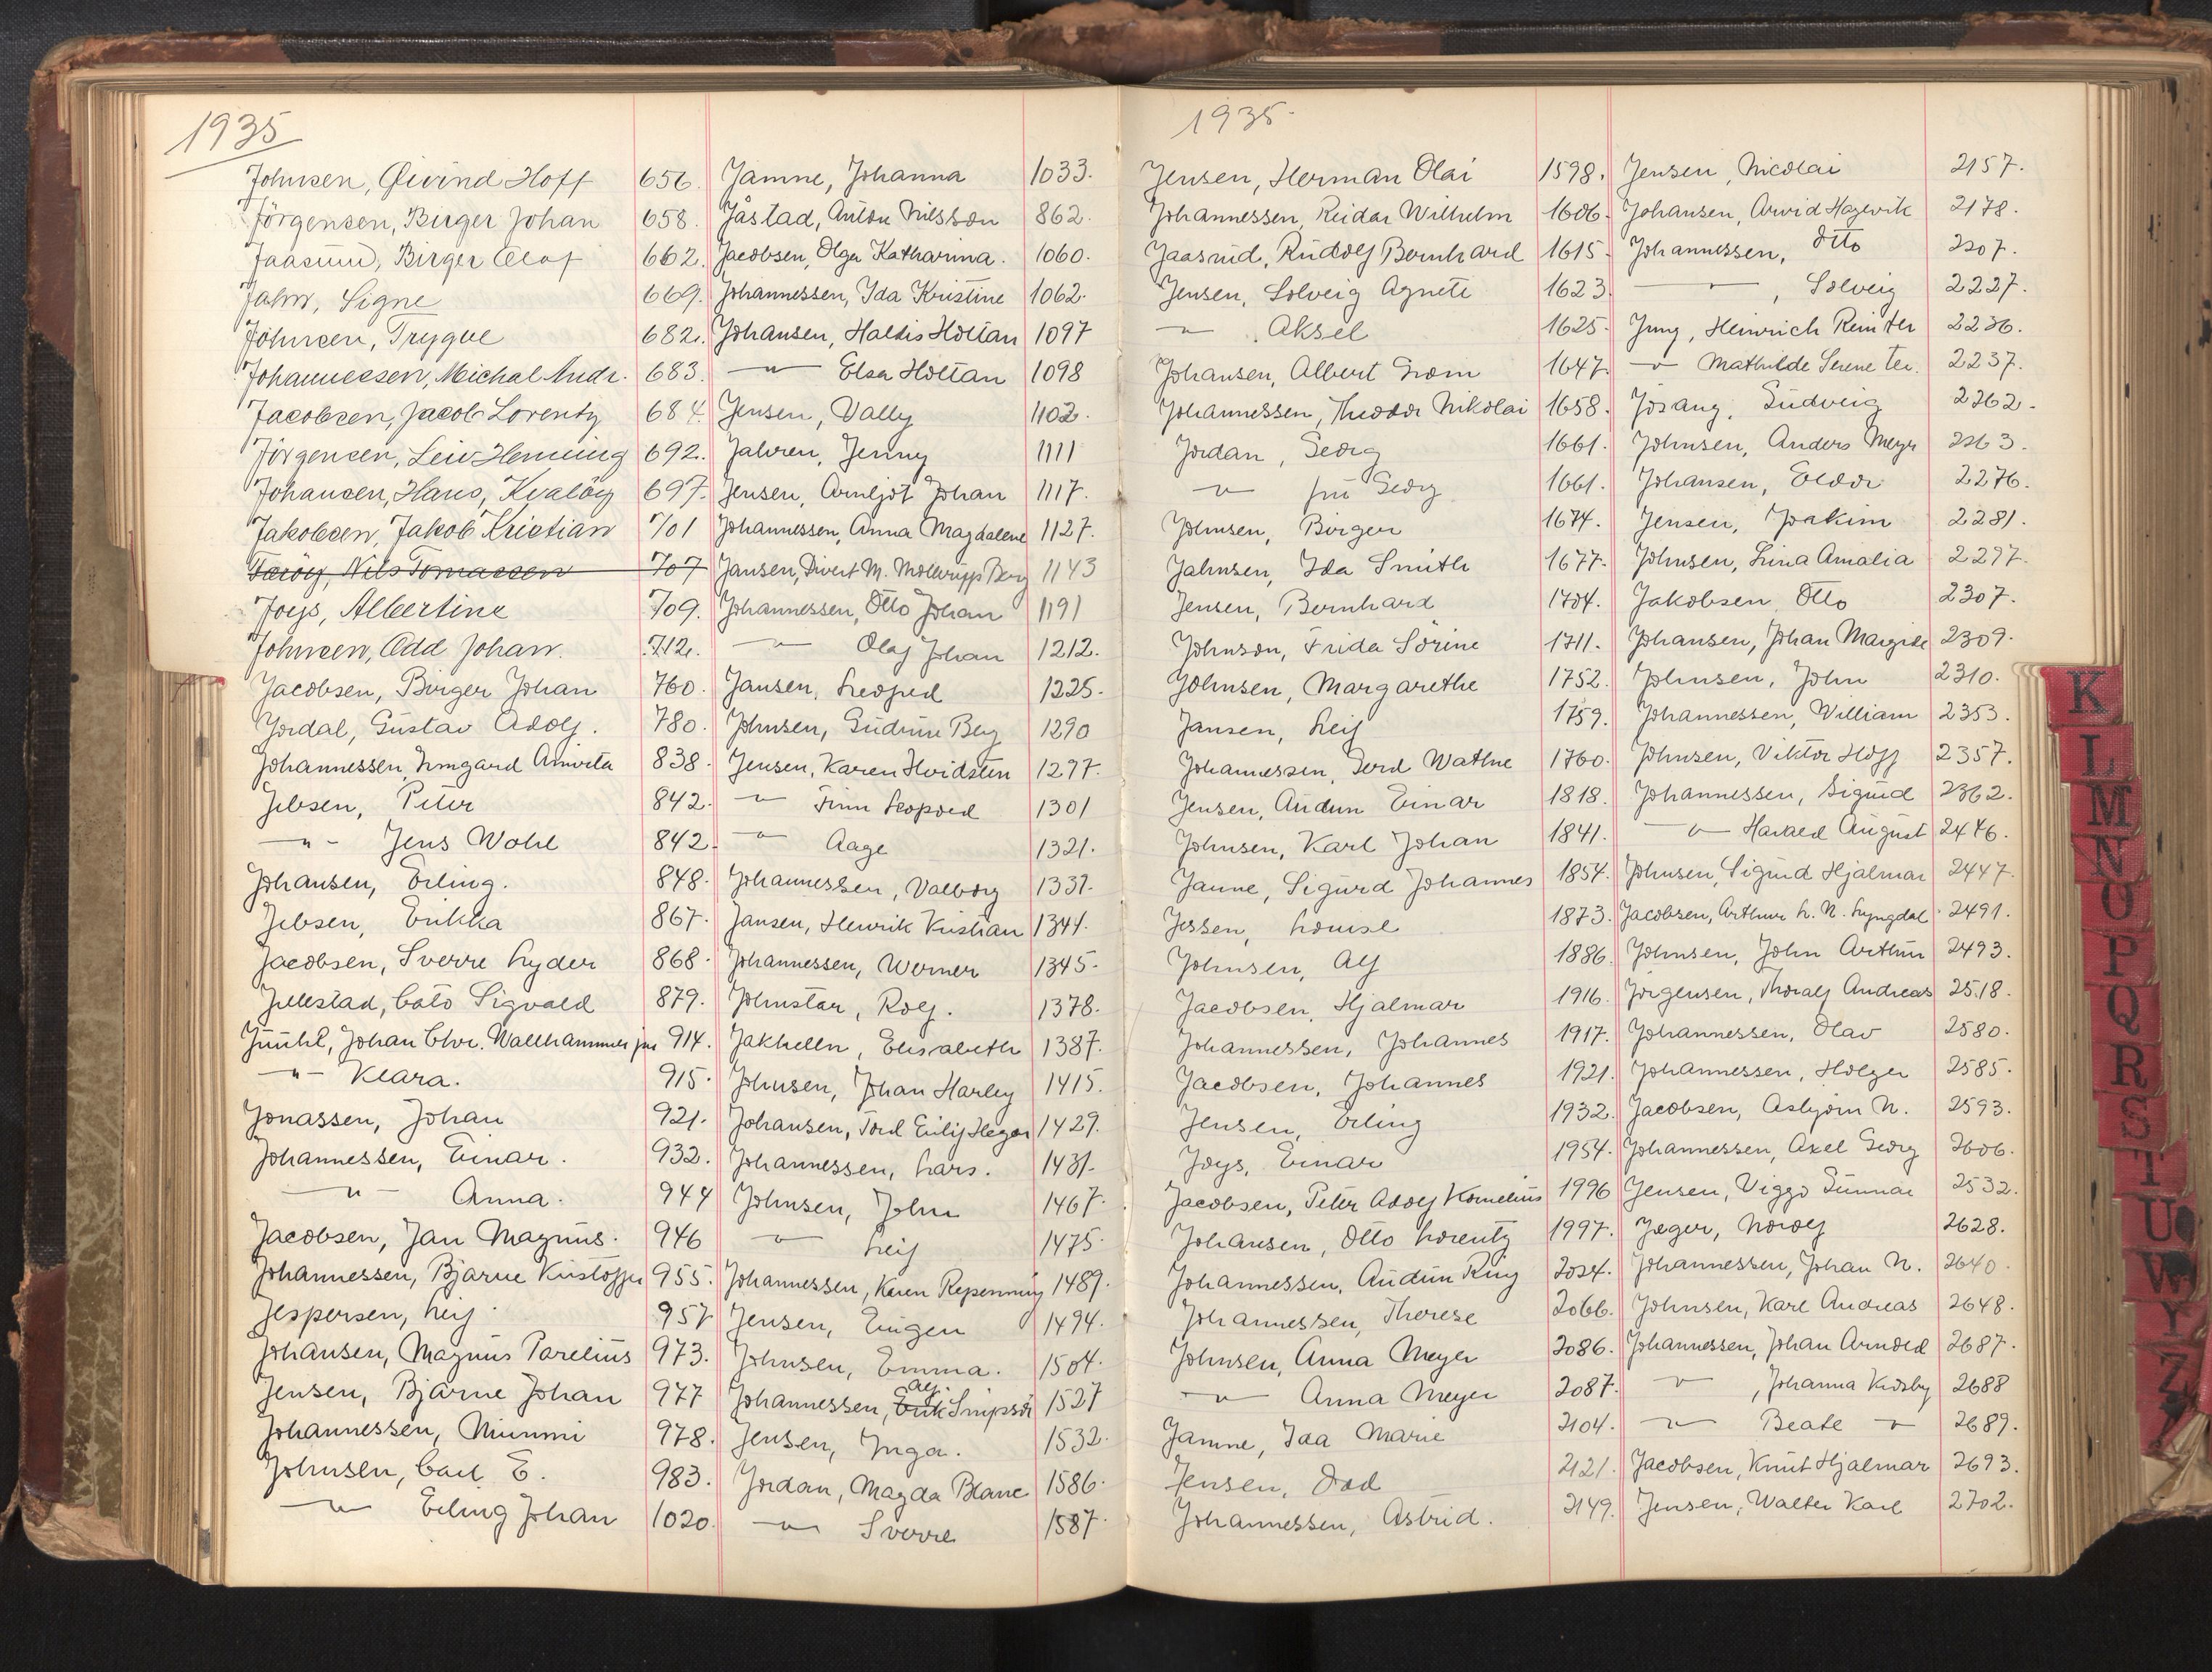 1935
Johnsen, Øivind Hoff 656.
Jörgensen, Birger Johan 658.
Jaasund, Birger Olaf 662.
Jahn, Signe 669.
Johnsen, Trygve 682.
Johannessen, Michal Andr. 683.
Jacobsen, Jacob Lorentz 684.
Jörgensen, Leiv Henning 692.
Johansen, Hans, Kvalöy 697.
Jakobsen, Jakob Kristian 701
Nils Tomassen 707
Joys, Albertine 709.
Johnsen, Odd Johan. 712.
Jacobsen, Birger Johan 760.
Jordal, Gustav Adolf. 780.
Johannessen, Irmgard 838.
Jebsen, Peter 842.
-"- Jens Wohl 842.
Johansen, Erling. 848.
Jebsen, Erikka 867.
Jacobsen, Sverre Lyder 868.
Jellestad, Cato Sigvald 879.
Johan Chr. Wallhammer jun 914.
-"- Klara. 915.
Jonassen, Johan 921.
Johannessen, Einar. 932.
-"- Anna. 944
Jacobsen, Jan Magnus. 946
Johannessen, Bjarne Kristoffer 955.
Jespersen, Leif. 957
Johansen, Magnus Parelius 973.
Jensen, Bjarne Johan 977
Johannessen, Mimmi 978.
Johnsen, Carl E. 983.
-"- Erling Johan 1020.
Jamne, Johanna 1033.
Jåstad, Anton Nilsson 862.
Jacobsen, Olga Katharina. 1060.
Johannessen, Ida Kristine 1062.
Johansen, Haldis Holtan 1097
-"- Elsa Holtan 1098
Jensen, Vally 1102.
Jahren, Jenny 1111
Jensen, Arnljot Johan 1117.
Johannessen, Anna Magdalene 1127.
Jansen, Divert M. Mollerupp Berg 1143
Johannessen, Otto Johan 1191
-"- Olaf Johan 1212.
Jansen, Leopold 1225.
Johnsen, Gudrun Berg 1290
Jensen, Karen Hvidsten 1297.
-"- Finn Leopold 1301
-"- Aage 1321.
Johannessen, Valborg 1337.
Jansen, Henrik Kristian 1344.
Johannessen, Werner 1345.
Johnstar, Rolf. 1378.
Jakhelln, Elisabeth 1387.
Johnsen, Johan Harley 1415.
Johansen, Tord Eilif Hegar 1429.
Johannessen, Lars. 1431.
Johnsen, John 1467.
-"- Leif 1475.
Johannessen, Karen Repenning 1489.
Jensen, Eugen 1494.
Johnsen, Emma. 1504.
Alf.
Johannessen, Erik Simpson 1527
Jensen, Inga. 1532.
Jordan, Magda Blanc 1586.
-"- Sverre 1587.
1935.
Jensen, Herman Olai 1598.
Johannessen, Reidar Wilhelm 1606.
Jaasund, Rudolf Bernhard 1615.
Jensen, Solveig Agnete 1623.
-"- Aksel 1625.
Johansen, Albert Grøm 1647.
Johannessen, Theodor Nikolai 1658.
Jordan, Georg 1661.
-"- fru Georg 1661.
Johnsen, Birger 1674.
Jahnsen, Ida Smith 1677.
Jensen, Bernhard 1704.
Johnson, Frida Sörine 1711.
Johnsen, Margarethe 1752.
Jansen, Leif 1759.
Johannessen, Gerd Wathne 1760.
Jensen, Audun Einar 1818.
Johnsen, Karl Johan 1841.
Janne, Sigurd Johannes 1854.
Jessen, Louise 1873.
Johnsen, Alf 1886.
Jacobsen, Hjalmar 1916.
Johannessen, Johannes 1917.
Jacobsen, Johannes 1921.
Jensen, Erling 1932.
Joys, Einar 1954.
Jacobsen, Peter Adolf Kornelius 1996
Johansen, Otto Lorentz 1997.
Johannessen, Audun Krug 2024.
Johannessen, Therese 2066.
Johnsen, Anna Meyer 2086.
-"- Anna Meyer 2087.
Jamne, Ida Marie 2104.
Jensen, Odd 2121.
Johannessen, Astrid. 2149.
Jensen, Nicolai 2157.
Johansen, Arvid Hagevik 2178.
Johannessen, Otto 2207.
-"-, Solveig 2227.
Jung, Heinrich Rein ter 2236.
-"- Mathilde Serene ter. 2237.
Jøsang, Ludvig 2262.
Johnsen, Anders Meyer 2263.
Johansen, Eldor 2276.
Jensen, Joakim 2281.
Johnsen, Lina Amalia 2297.
Jakobsen Otto 2307.
Johansen, Johan Margido 2309.
Johnsen, John 2310.
Johannessen, William 2353.
Johnsen, Viktor Hoff 2357.
Johannessen, Sigurd 2362.
-"- Harald August 2446.
Johnsen, Sigurd Hjalmar 2447.
Jacobsen, Arthur L. N. Lyngdal 2491.
Johnsen, John Arthur 2493.
Jörgensen, Thoralf Andreas 2518.
Johannessen, Olav 2580.
Johannessen, Holger 2585.
Jacobsen, Asbjørn N. 2593.
Johannessen, Axel Georg 2606.
Jensen, Viggo Gunnar 2532.
Jæger, Norolf 2628.
Johannessen, Johan N. 2640.
Johnsen, Karl Andreas 2648.
Johannessen, Johan Arnold 2687.
-"-, Johanna Kidsby 2688
-"- Beate -"- 2689.
Jacobsen, Knut Hjalmar 2693.
Jensen, Walter Karl 2702.
K
L
M
N
O
P
Q
R
S
T
U
W
Y
Z